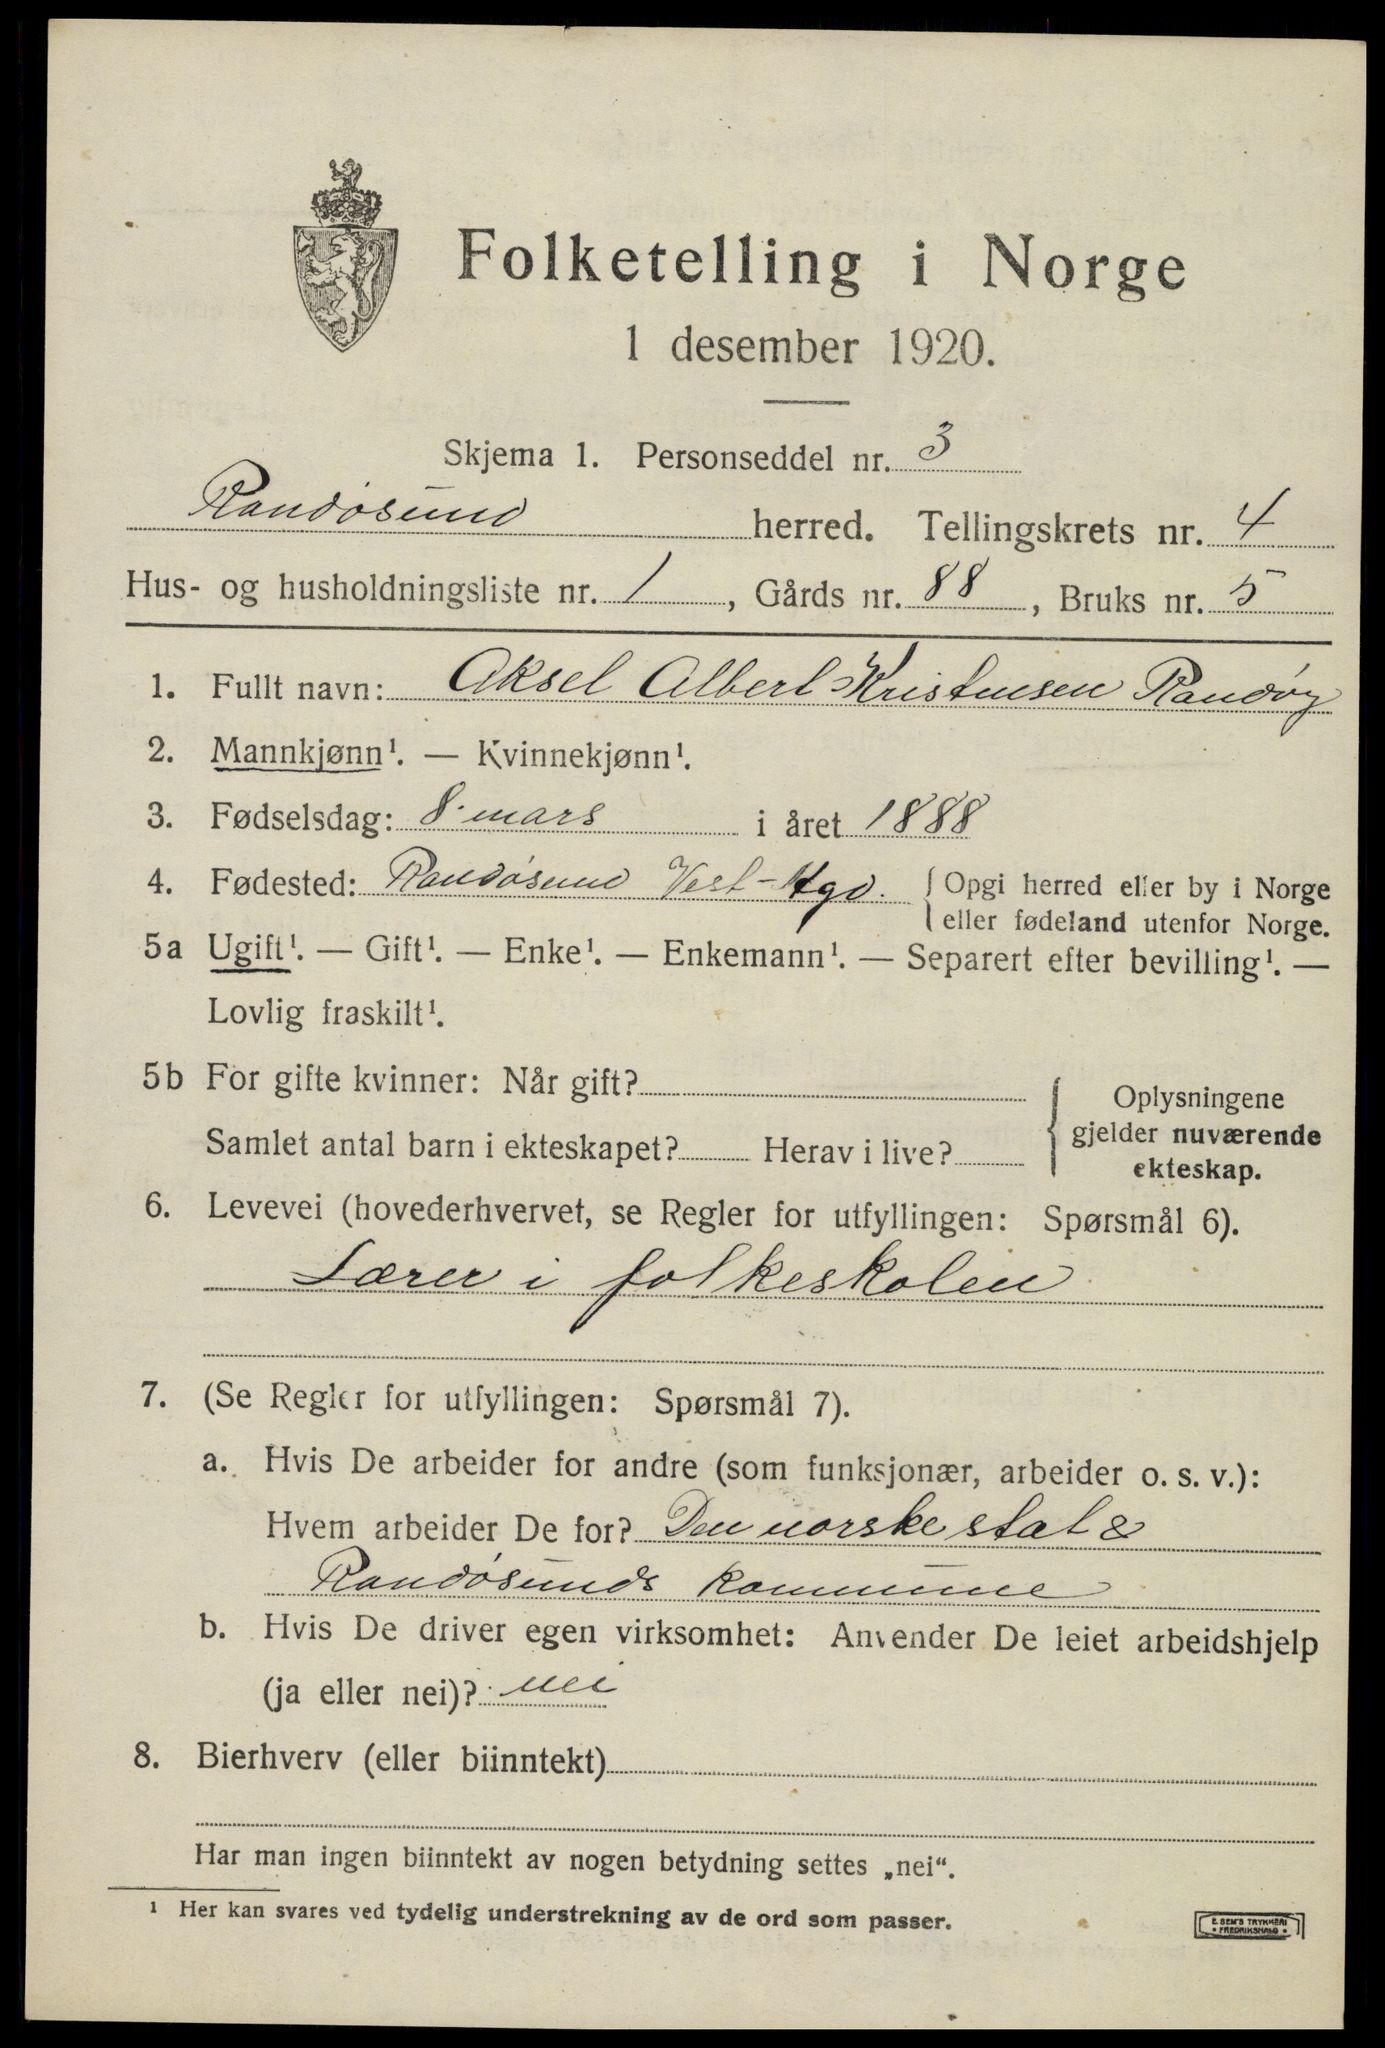 Folketelling i Norge
1 desember 1920.
Skjema 1. Personseddel nr. 3
Randøsund herred. Tellingskrets nr. 4
Hus- og husholdningsliste nr. 1, Gårds nr. 88, Bruks nr. 5
1. Fullt navn: Aksel Albert Kristensen Randøy
2. Mannkjønn¹. — Kvinnekjønn¹.
3. Fødselsdag: 8. mars i året 1888
4. Fødested: Randøsund Vest-Agd. { Opgi herred eller by i Norge
eller fødeland utenfor Norge.
5a Ugift¹. — Gift¹. — Enke¹. — Enkemann¹. — Separert efter bevilling¹. —
Lovlig fraskilt¹.
5b For gifte kvinner: Når gift?
Samlet antal barn i ekteskapet? Herav i live?
{ Oplysningene
gjelder nuværende
ekteskap.
6. Levevei (hovederhvervet, se Regler for utfyllingen: Spørsmål 6).
Lærer i folkeskolen
7. (Se Regler for utfyllingen: Spørsmål 7).
a. Hvis De arbeider for andre (som funksjonær, arbeider o. s. v.):
Hvem arbeider De for? Den norske stat &
Randøsunds kommune
b. Hvis De driver egen virksomhet: Anvender De leiet arbeidshjelp
(ja eller nei)? nei
8. Bierhverv (eller biinntekt)
Har man ingen biinntekt av nogen betydning settes „nei“.
¹ Her kan svares ved tydelig understrekning av de ord som passer.
E. SEM'S TRYKKERI
• FREDRIKSHALD •